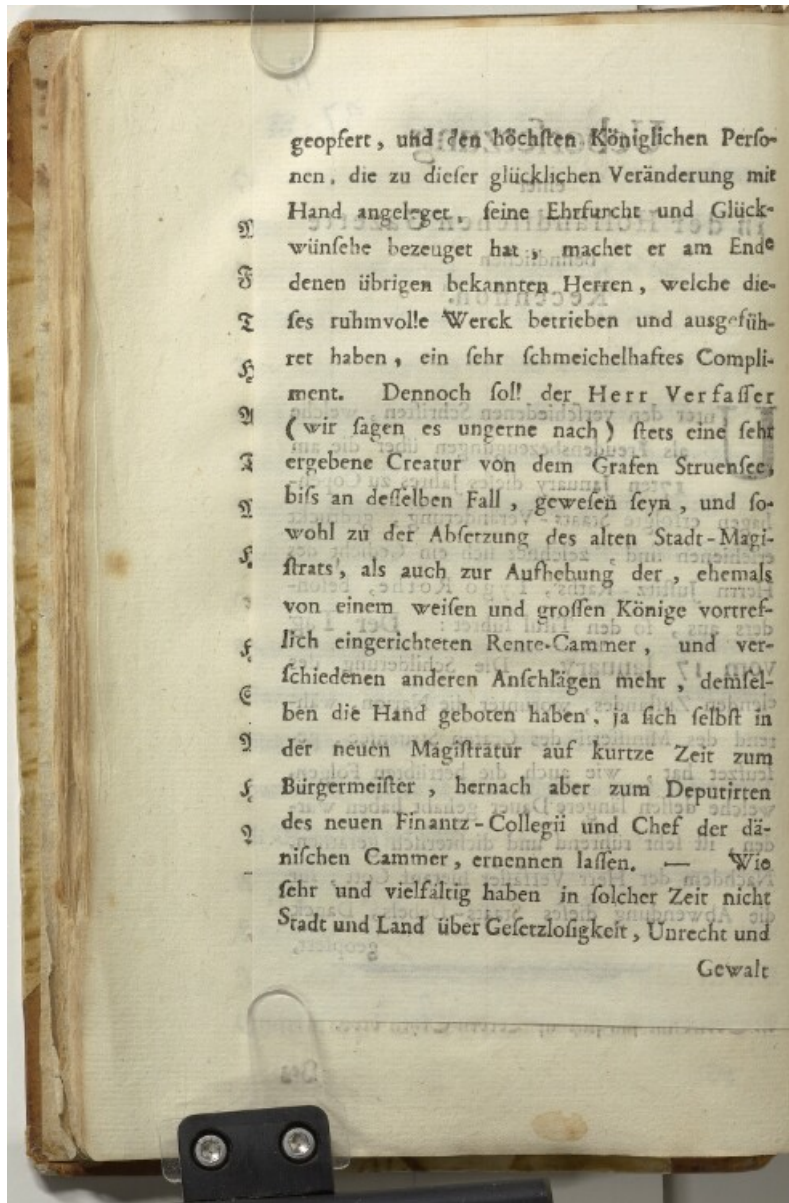 geopfert, und den höchſten Königlichen Perſo-
nen, die zu dieſer glücklichen Veränderung mit
Hand angeleget, ſeine Ehrfurcht und Glück-
wünſche bezeuget hat, machet er am Ende
denen übrigen bekannten Herren, welche die-
ſes ruhmvolle Werck betrieben und ausgefüh-
ret haben, ein ſehr ſchmeichelhaftes Compli-
ment. Dennoch ſoll der Herr Verfaſſer
(wir ſagen es ungerne nach) ſtets eine ſehr
ergebene Creatur von dem Grafen Struenſee,
biſs an deſſelben Fall, geweſen ſeyn, und ſo-
wohl zu der Abſetzung des alten Stadt-Magi-
ſtrats, als auch zur Aufhebung der, ehemals
von einem weiſen und groſſen Könige vortref-
lich eingerichteten Rente-Cammer, und ver-
ſchiedenen anderen Anſchlägen mehr, demſel-
ben die Hand geboten haben, ja ſich ſelbſt in
der neuen Magiſtratur auf kurtze Zeit zum
Bürgermeiſter, hernach aber zum Deputirten
des neuen Finantz-Collegii und Chef der dä-
niſchen Cammer, ernennen laſſen. — Wie
ſehr und vielfältig haben in ſolcher Zeit nicht
Stadt und Land über Geſetzloſigkeit, Unrecht und
Gewalt